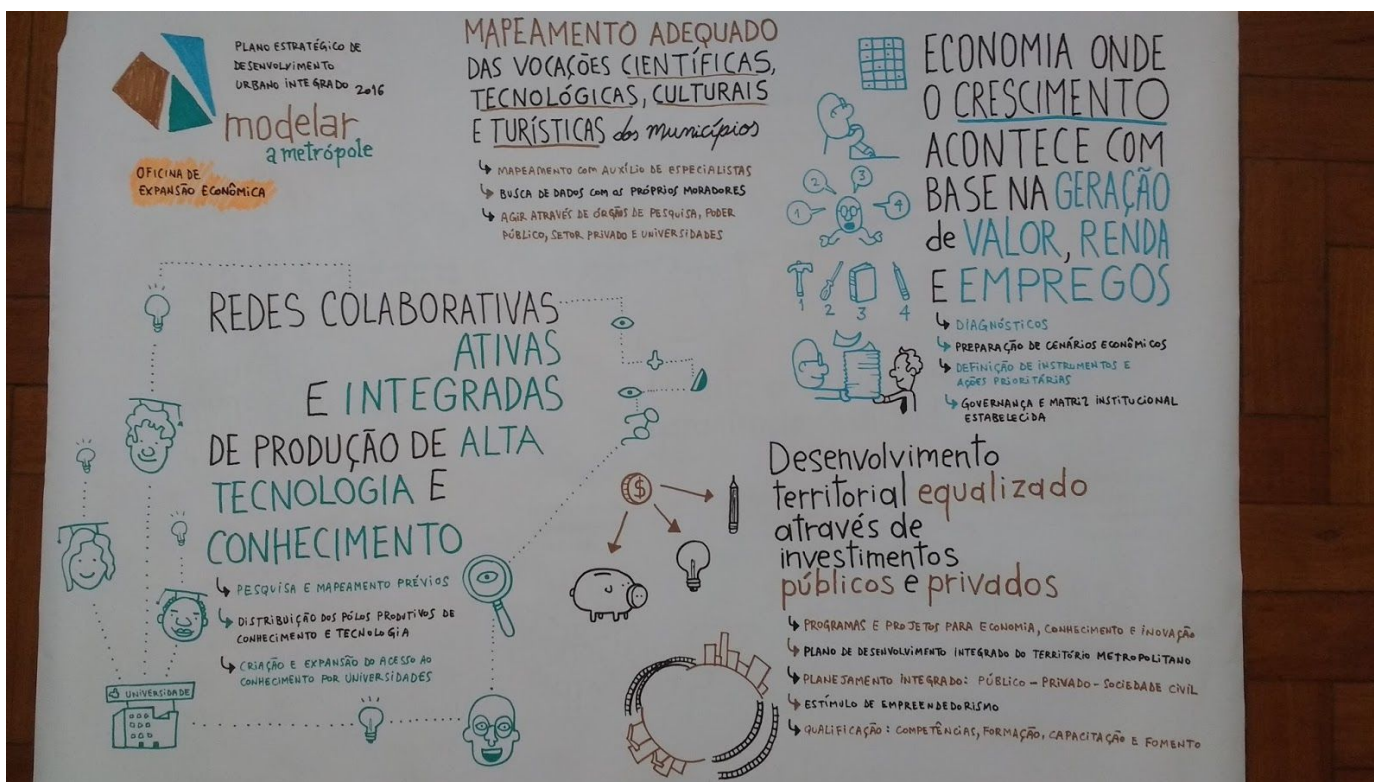 PLANO ESTRATÉGICO DE
DESENVOLVIMENTO
URBANO INTEGRADO 2016
modelar
a metrópole
OFICINA DE
EXPANSÃO ECONÔMICA
MAPEAMENTO ADEQUADO
DAS VOCAÇÕES CIENTÍFICAS,
TECNOLÓGICAS, CULTURAIS
E TURÍSTICAS dos municípios
↳ MAPEAMENTO COM AUXÍLIO DE ESPECIALISTAS
↳ BUSCA DE DADOS COM OS PRÓPRIOS MORADORES
↳ AGIR ATRAVÉS DE ÓRGÃOS DE PESQUISA, PODER
PÚBLICO, SETOR PRIVADO E UNIVERSIDADES
ECONOMIA ONDE
O CRESCIMENTO
ACONTECE COM
BASE NA GERAÇÃO
de VALOR, RENDA
E EMPREGOS
1 2 3 4
1 2 3 4
↳ DIAGNÓSTICOS
↳ PREPARAÇÃO DE CENÁRIOS ECONÔMICOS
↳ DEFINIÇÃO DE INSTRUMENTOS E
AÇÕES PRIORITÁRIAS
↳ GOVERNANÇA E MATRIZ INSTITUCIONAL
ESTABELECIDA
REDES COLABORATIVAS
ATIVAS
E INTEGRADAS
DE PRODUÇÃO DE ALTA
TECNOLOGIA E
CONHECIMENTO
↳ PESQUISA E MAPEAMENTO PRÉVIOS
↳ DISTRIBUIÇÃO DOS PÓLOS PRODUTIVOS DE
CONHECIMENTO E TECNOLOGIA
↳ CRIAÇÃO E EXPANSÃO DO ACESSO AO
CONHECIMENTO POR UNIVERSIDADES
UNIVERSIDADE
$
Desenvolvimento
territorial equalizado
através de
investimentos
públicos e privados
↳ PROGRAMAS E PROJETOS PARA ECONOMIA, CONHECIMENTO E INOVAÇÃO
↳ PLANO DE DESENVOLVIMENTO INTEGRADO DO TERRITÓRIO METROPOLITANO
↳ PLANEJAMENTO INTEGRADO: PÚBLICO - PRIVADO - SOCIEDADE CIVIL
↳ ESTÍMULO DE EMPREENDEDORISMO
↳ QUALIFICAÇÃO: COMPETÊNCIAS, FORMAÇÃO, CAPACITAÇÃO E FOMENTO